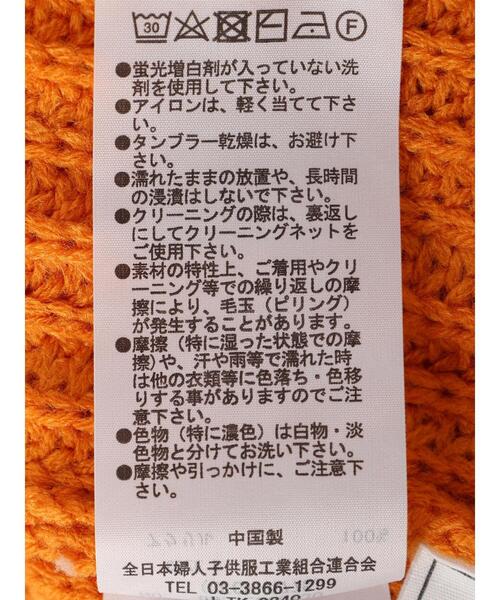 30 F
●蛍光増白剤が入っていない洗
剤を使用して下さい。
●アイロンは、軽く当てて下さ
い。
●タンブラー乾燥は、お避け下
さい。
●濡れたままの放置や、長時間
の浸漬はしないで下さい。
●クリーニングの際は、裏返し
にしてクリーニングネットを
ご使用下さい。
●素材の特性上、ご着用やクリ
ーニング等での繰り返しの摩
擦により、毛玉（ピリング）
が発生することがあります。
●摩擦（特に湿った状態での摩
擦）や、汗や雨等で濡れた時
は他の衣類等に色落ち・色移
りする事がありますのでご注
意下さい。
●色物（特に濃色）は白物・淡
色物と分けてお洗い下さい。
●摩擦や引っかけに、ご注意下
さい。
中国製
全日本婦人子供服工業組合連合会
TEL 03-3866-1299